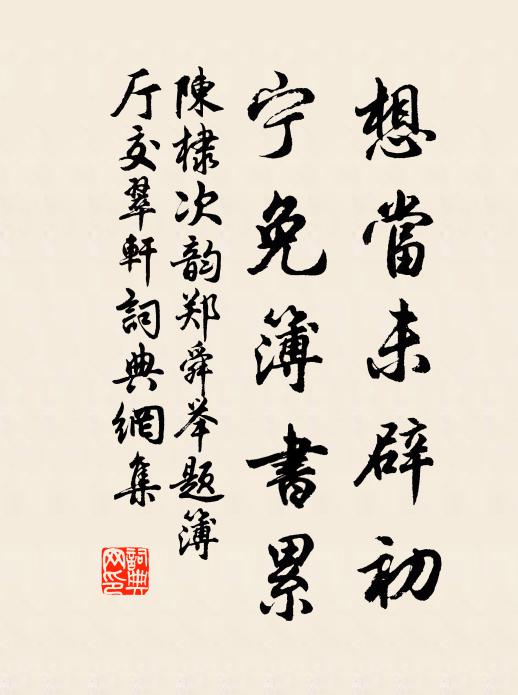 想當未辟初
宁免簿書累
陳棣次韵郑舜举题簿
厅交翠軒詞典網集
詞典网印